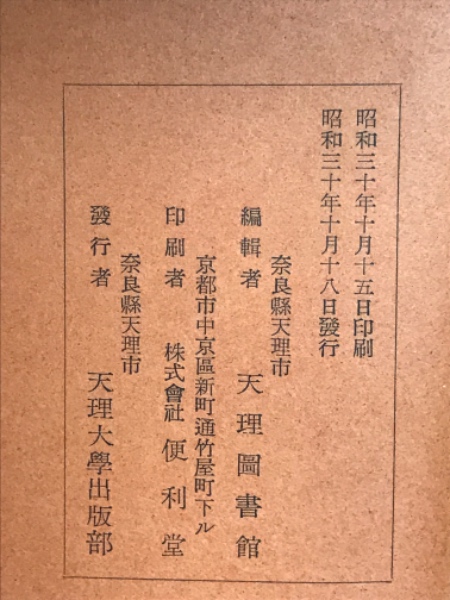 昭和三十年十月十五日印刷
昭和三十年十月十八日發行
奈良縣天理市
編輯者 天理圖書館
京都市中京區新町通竹屋町下ル
印刷者 株式會社 便利堂
奈良縣天理市
發行者 天理大學出版部